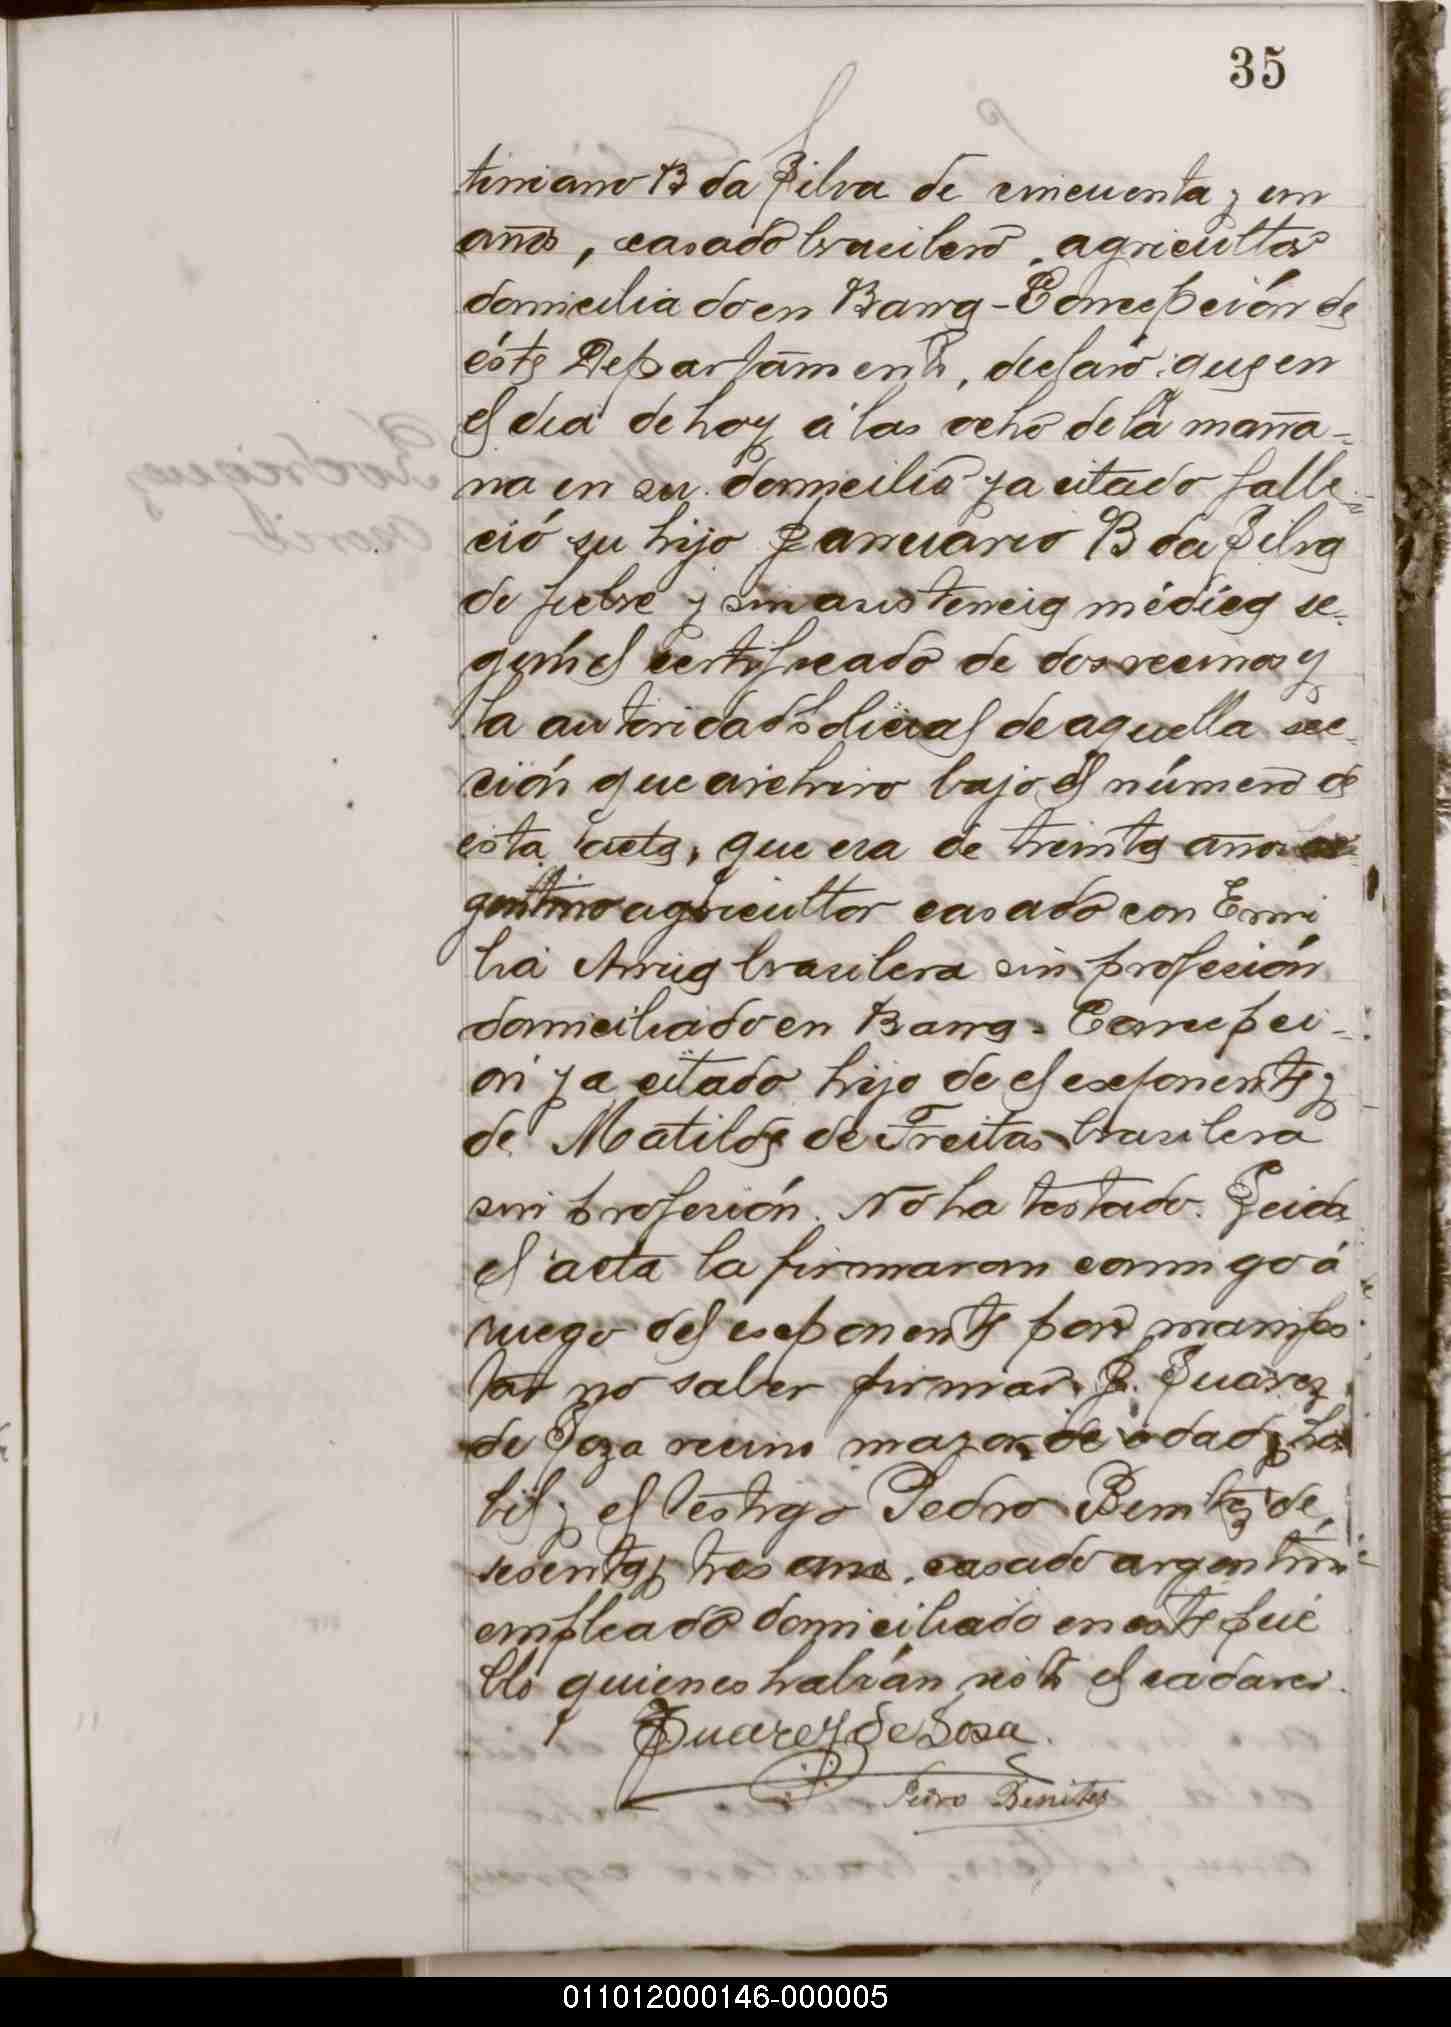 35
tiniano B da Silva de cincuenta y un
años, casado brasilero, agricultor
domiciliado en Barra-Concepción de
éste Departamento, declaró: que en
el dia de hoy á las ocho de la maña-
na en su domicilio ya citado falle-
ció su hijo Januario B da Silva
de fiebre y sin asistencia médica se-
gún el certificado de dos vecinos y
la autoridad Policial de aquella sec-
ción que archivo bajo el número de
esta acta, que era de treinta años ar-
gentino agricultor casado con Emi
lia brasilera sin profesión
domiciliado en Barra-Concepci-
ón ya citado hijo de el exponente y
de Matilde de Freitas brasilera
sin profesión. No ha testado. Leida
el acta la firmaran conmigo á
ruego del exponente por manifes
tar no saber firmar J. Juarez
de Soza vecino mayor de edad y há
bil y el testigo Pedro Benitez de
sesenta y tres años, casado argentino
empleado domiciliado en este pue
blo quienes habían visto el cadaver.
Juarez de Sosa
Pedro Benites
011012000146-000005